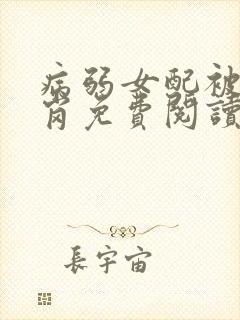 病弱女配被
岗免費閱讀
長宇宙